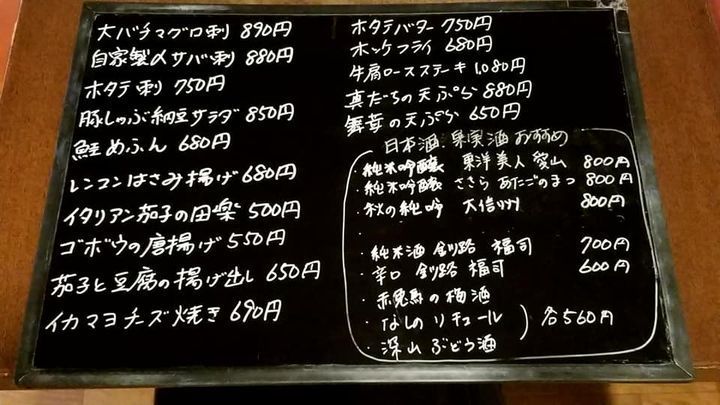 大バチマグロ刺 890円
自家製〆サバ刺 880円
ホタテ刺 750円
豚しゃぶ納豆サラダ 850円
鮭めふん 680円
レンコンはさみ揚げ 680円
イタリアン茄子の田楽 500円
ゴボウの唐揚げ 550円
茄子と豆腐の揚げ出し 650円
イカマヨチーズ焼き 690円
ホタテバター 750円
ホッケフライ 680円
牛肩ロースステーキ 1,080円
真だちの天ぷら 880円
舞茸の天ぷら 650円
日本酒.果実酒おすすめ
・純米吟醸 東洋美人 愛山 800円
・純米吟醸 ささら あたごのまつ 800円
・秋の純吟 大信州 800円
・
・純米酒 釧路 福司 700円
・辛口 釧路 福司 600円
・赤兎馬の梅酒
・なしのリキュール ) 各560円
・深山ぶどう酒